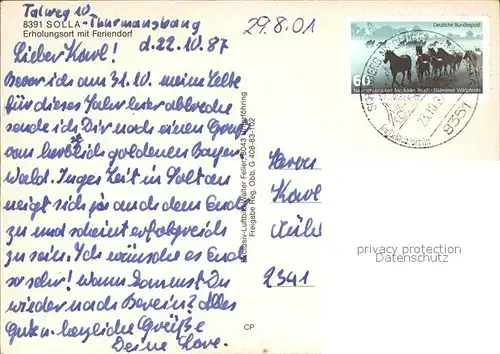 Talweg 10,
8391 SOLLA - Thurmansbang
Erholungsort mit Feriendorf
29.8.01
d. 22.10.87
Lieber Karl!
Bevor ich am 31.10. meine Zelte
für dieses Jahr hier abbreche
sende ich Dir noch einen Gruß
vom herbstlich goldenen Bayer.
Wald. Inges Zeit in Soltau
neigt sich ja auch dem Ende
zu und scheint erfolgreich
zu sein. Ich wünsche es Euch
so sehr! Wann kommst Du
wieder nach Bevern? Alles
Gute u. herzliche Grüße
Deine
Deutsche Bundespost
60
Naturschutzgebiet Merfelder Bruch · Dülmener Wildpferde
8351
Herrn
Karl
2341
Freigabe Reg. Obb. G
CP
privacy protection
Datenschutz